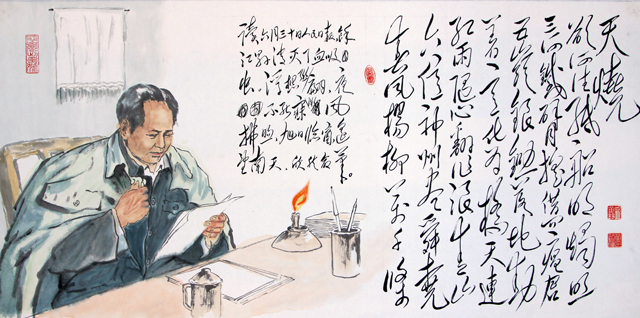 读六月三十日人民日报，余
江县消灭了血吸
虫，浮想联翩，夜
不能寐，微风
拂煦，旭日临窗，遥
望南天，欣然命笔。
春风杨柳万千条
六亿神州尽舜尧
红雨随心翻作浪青山
着意化为桥天连
五岭银锄落地动
三河铁臂摇借问瘟君
欲何往纸船明烛照
天烧